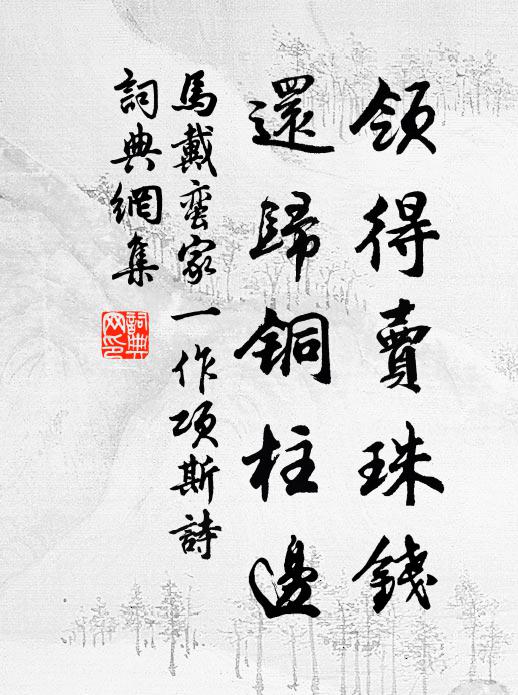 領得賣珠錢
還歸銅柱邊
馬戴蠻家一作項斯詩
詞典網集
詞典
網印